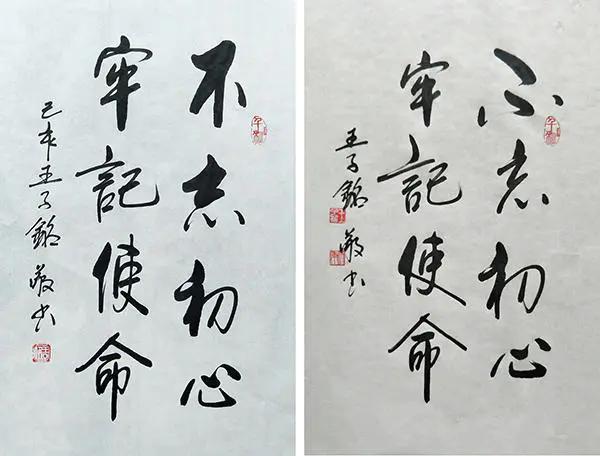 不忘初心
牢記使命
己亥王子銘敬书
不忘初心
牢記使命
王子銘敬书